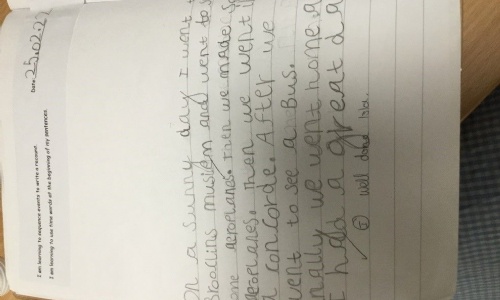 Date: 25.02.22
I am learning to sequence events to write a recount.
I am learning to use time words at the beginning of my sentences.
On a sunny day I went
Brooclins musigm and went to
ome aeroplanes. then we made
aeroplanes. Then we went
a concorde. After we
went to see a Bus.
nally we went home. a
I had a great da
well done